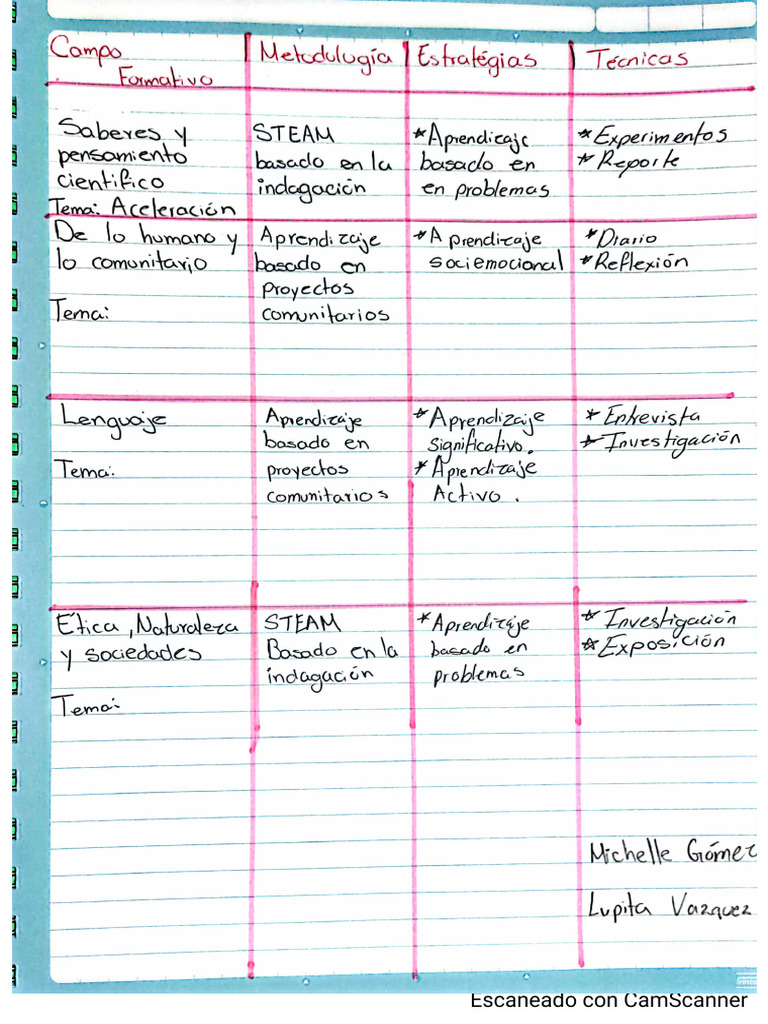 Campo Formativo | Metodología | Estratégias | Técnicas
Saberes y pensamiento científico
Tema: Aceleración
STEAM
basado en la
indagación
*Aprendizaje
basado en
en problemas
*Experimentos
*Reporte
De lo humano y
lo comunitario
Tema:
Aprendizaje
basado en
proyectos
comunitarios
*Aprendizaje
sociemocional
*Diario
*Reflexión
Lenguaje
Tema:
Aprendizaje
basado en
proyectos
comunitarios
*Aprendizaje
significativo.
*Aprendizaje
Activo.
*Entrevista
*Investigación
Etica, Naturaleza
y sociedades
Tema:
STEAM
Basado en la
indagación
*Aprendizaje
basado en
problemas
*Investigación
*Exposición
Michelle Gómez
Lupita Vazquez
Escaneado con CamScanner